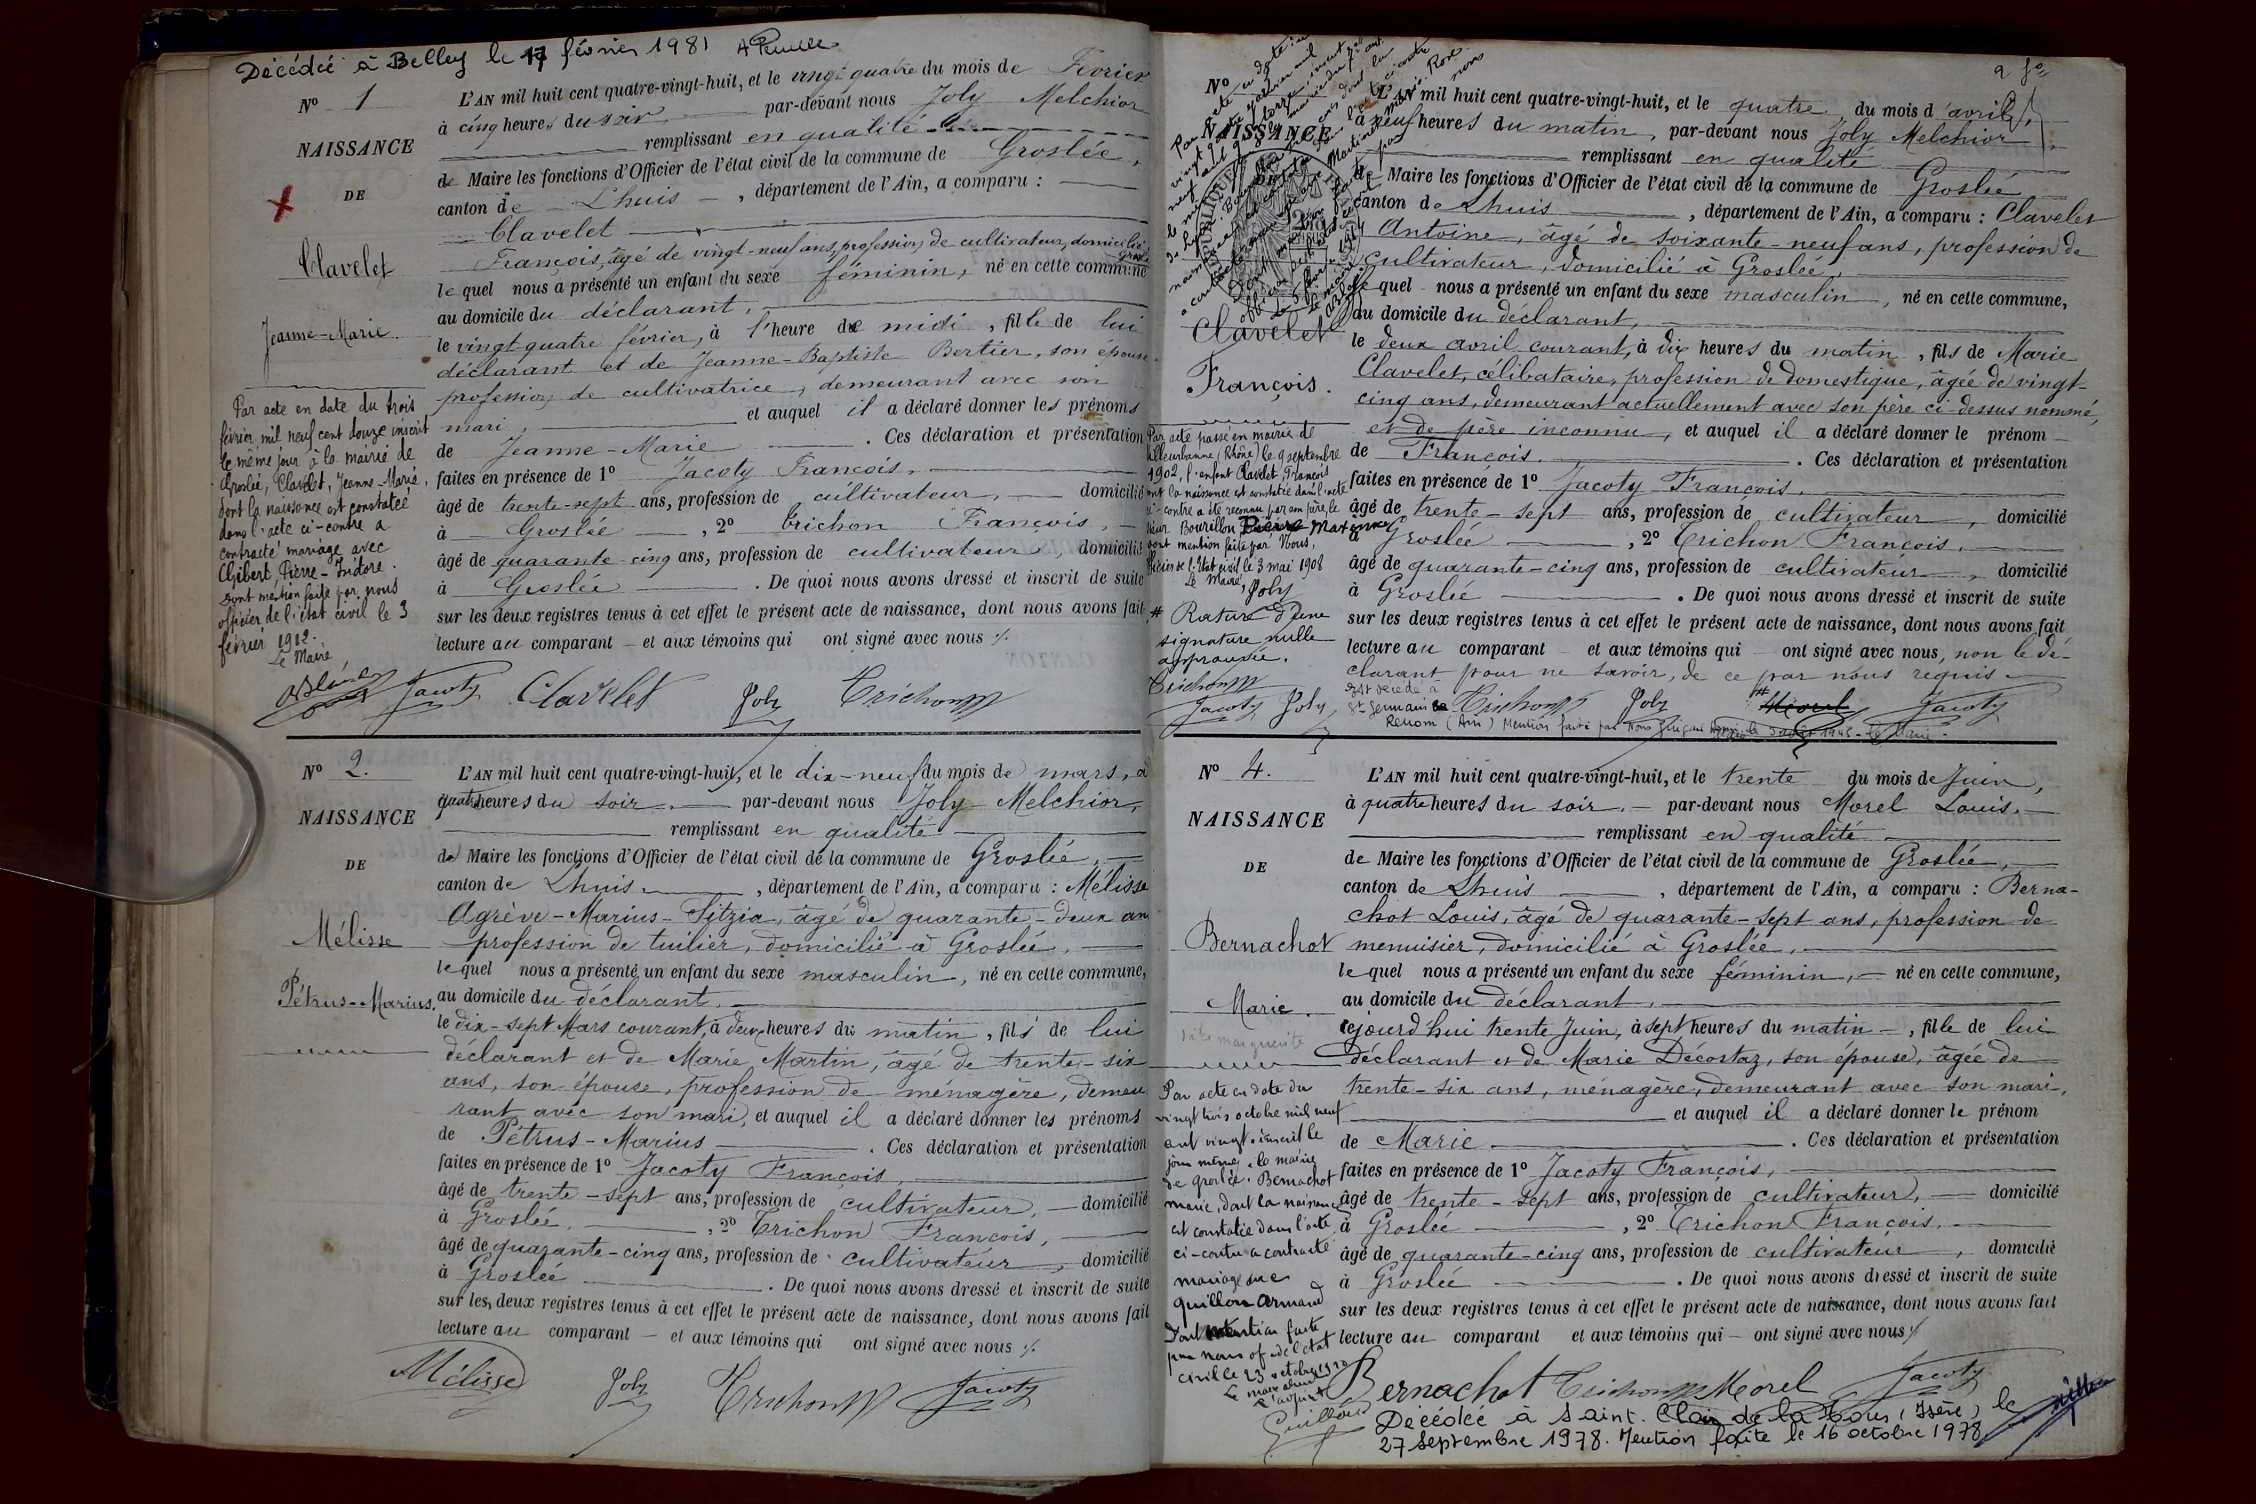 Décédée à Belley le 17 février 1981
No 1
NAISSANCE
DE
Clavelet
Jeanne-Marie.
Par acte en date du trois
février mil neuf cent douze inscrit
le même jour à la mairie de
Groslée, Clavelet, Jeanne-Marie,
dont la naissance est constatée
dans l'acte ci-contre a
contracté mariage avec
Gibert, Pierre-Isidore.
Dont mention faite par nous
officier de l'état civil le 3
février 1912.
Le Maire
L'AN mil huit cent quatre-vingt-huit, et le vingt quatre du mois de Février
à cinq heures du soir, par-devant nous Joly Melchior
remplissant en qualité
de Maire les fonctions d'Officier de l'état civil de la commune de Groslée,
canton de Lhuis, département de l'Ain, a comparu :
Clavelet
François, âgé de vingt-neuf ans, profession de cultivateur, domicilié à Groslée
lequel nous a présenté un enfant du sexe féminin, né en cette commune
au domicile du déclarant,
le vingt-quatre février, à l'heure de midi, fille de lui
déclarant et de Jeanne-Baptiste Bertier, son épouse
profession de cultivatrice, demeurant avec son
mari, et auquel il a déclaré donner les prénoms
de Jeanne-Marie. Ces déclaration et présentation
faites en présence de 1º Jacoty François,
âgé de trente-sept ans, profession de cultivateur, domicilié
à Groslée, 2º Trichon François,
âgé de quarante-cinq ans, profession de cultivateur, domicilié
à Groslée. De quoi nous avons dressé et inscrit de suite
sur les deux registres tenus à cet effet le présent acte de naissance, dont nous avons fait
lecture au comparant et aux témoins qui ont signé avec nous ./.
Jacoty Clavelet Joly Trichon
No 2.
NAISSANCE
DE
Mélisse
Pétrus-Marius.
L'AN mil huit cent quatre-vingt-huit, et le dix-neuf du mois de mars, à
quatre heures du soir, par-devant nous Joly Melchior,
remplissant en qualité
de Maire les fonctions d'Officier de l'état civil de la commune de Groslée,
canton de Lhuis, département de l'Ain, a comparu : Mélisse
Agrève-Marius-Sitzia, âgé de quarante-deux ans
profession de tuilier, domicilié à Groslée,
lequel nous a présenté un enfant du sexe masculin, né en cette commune,
au domicile du déclarant,
le dix-sept Mars courant, à deux heures du matin, fils de lui
déclarant et de Marie Martin, âgé de trente-six
ans, son épouse, profession de ménagère, demeu
rant avec son mari, et auquel il a déclaré donner les prénoms
de Pétrus-Marius. Ces déclaration et présentation
faites en présence de 1º Jacoty François,
âgé de trente-sept ans, profession de cultivateur, domicilié
à Groslée, 2º Trichon François,
âgé de quarante-cinq ans, profession de cultivateur, domicilié
à Groslée. De quoi nous avons dressé et inscrit de suite
sur les deux registres tenus à cet effet le présent acte de naissance, dont nous avons fait
lecture au comparant et aux témoins qui ont signé avec nous ./.
Mélisse Joly Trichon Jacoty
No
NAISSANCE
Clavelet
François.
Par acte passé en mairie de
Villeurbanne (Rhône) le 9 septembre
1902, l'enfant Clavelet, François
dont la naissance est constatée dans l'acte
ci-contre a été reconnu par son père, le
sieur Bourillon Pierre Maxime
dont mention faite par Nous,
Officier de l'Etat civil le 3 mai 1908
Le Maire, Joly
# Rature d'une
signature nulle
approuvée.
Trichon
Jacoty Joly
L'AN mil huit cent quatre-vingt-huit, et le quatre du mois d'avril,
à neuf heures du matin, par-devant nous Joly Melchior
remplissant en qualité
de Maire les fonctions d'Officier de l'état civil de la commune de Groslée
canton de Lhuis, département de l'Ain, a comparu : Clavelet
Antoine, âgé de soixante-neuf ans, profession de
cultivateur, domicilié à Groslée,
lequel nous a présenté un enfant du sexe masculin, né en cette commune,
au domicile du déclarant,
le deux avril courant, à dix heures du matin, fils de Marie
Clavelet, célibataire, profession de domestique, âgée de vingt-
cinq ans, demeurant actuellement avec son père ci-dessus nommé,
et de père inconnu, et auquel il a déclaré donner le prénom
de François. Ces déclaration et présentation
faites en présence de 1º Jacoty François,
âgé de trente-sept ans, profession de cultivateur, domicilié
à Groslée, 2º Trichon François,
âgé de quarante-cinq ans, profession de cultivateur, domicilié
à Groslée. De quoi nous avons dressé et inscrit de suite
sur les deux registres tenus à cet effet le présent acte de naissance, dont nous avons fait
lecture au comparant et aux témoins qui ont signé avec nous, non le dé-
clarant pour ne savoir, de ce par nous requis
Est décédé à
St Germain Trichon Joly # Morel Jacoty
Renom (Ain) Mention faite par Nous
No 4.
NAISSANCE
DE
Bernachot
Marie.
Par acte en date du
vingt trois octobre mil neuf
cent vingt inscrit le
jour même à la mairie
de Groslée. Bernachot
marie, dont la naissance
est constatée dans l'acte
ci-contre a contracté
mariage avec
Guillon Armand
Dont mention faite
par nous of. de l'état
civil le 23 octobre 1920
L'AN mil huit cent quatre-vingt-huit, et le trente du mois de Juin,
à quatre heures du soir, par-devant nous Morel Louis,
remplissant en qualité
de Maire les fonctions d'Officier de l'état civil de la commune de Groslée,
canton de Lhuis, département de l'Ain, a comparu : Berna-
chot Louis, âgé de quarante-sept ans, profession de
menuisier, domicilié à Groslée,
lequel nous a présenté un enfant du sexe féminin, né en cette commune,
au domicile du déclarant,
cejourd'hui trente Juin, à sept heures du matin, fille de lui
déclarant et de Marie Décostaz, son épouse, âgée de
trente-six ans, ménagère, demeurant avec son mari,
et auquel il a déclaré donner le prénom
de Marie. Ces déclaration et présentation
faites en présence de 1º Jacoty François,
âgé de trente-sept ans, profession de cultivateur, domicilié
à Groslée, 2º Trichon François,
âgé de quarante-cinq ans, profession de cultivateur, domicilié
à Groslée. De quoi nous avons dressé et inscrit de suite
sur les deux registres tenus à cet effet le présent acte de naissance, dont nous avons fait
lecture au comparant et aux témoins qui ont signé avec nous ./.
Bernachot Trichon Morel Jacoty
Décédée à Saint. Clair de la Tour (Isère) le
27 septembre 1978. Mention faite le 16 octobre 1978